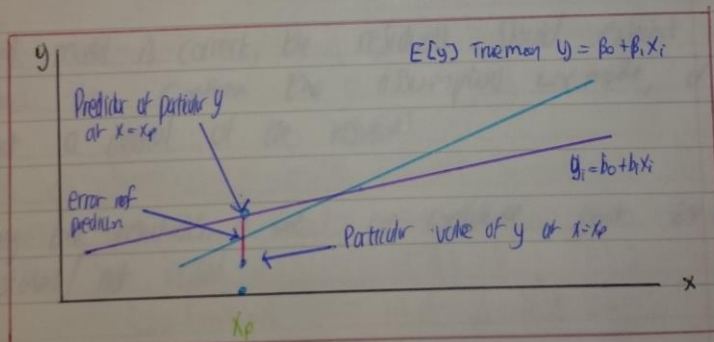 y
E[y] True mean y = β0+β1xi
Predictor of particular y
at x=xp
ŷi=b0+b1xi
error of
prediction
Particular value of y at x=xp
x
xp